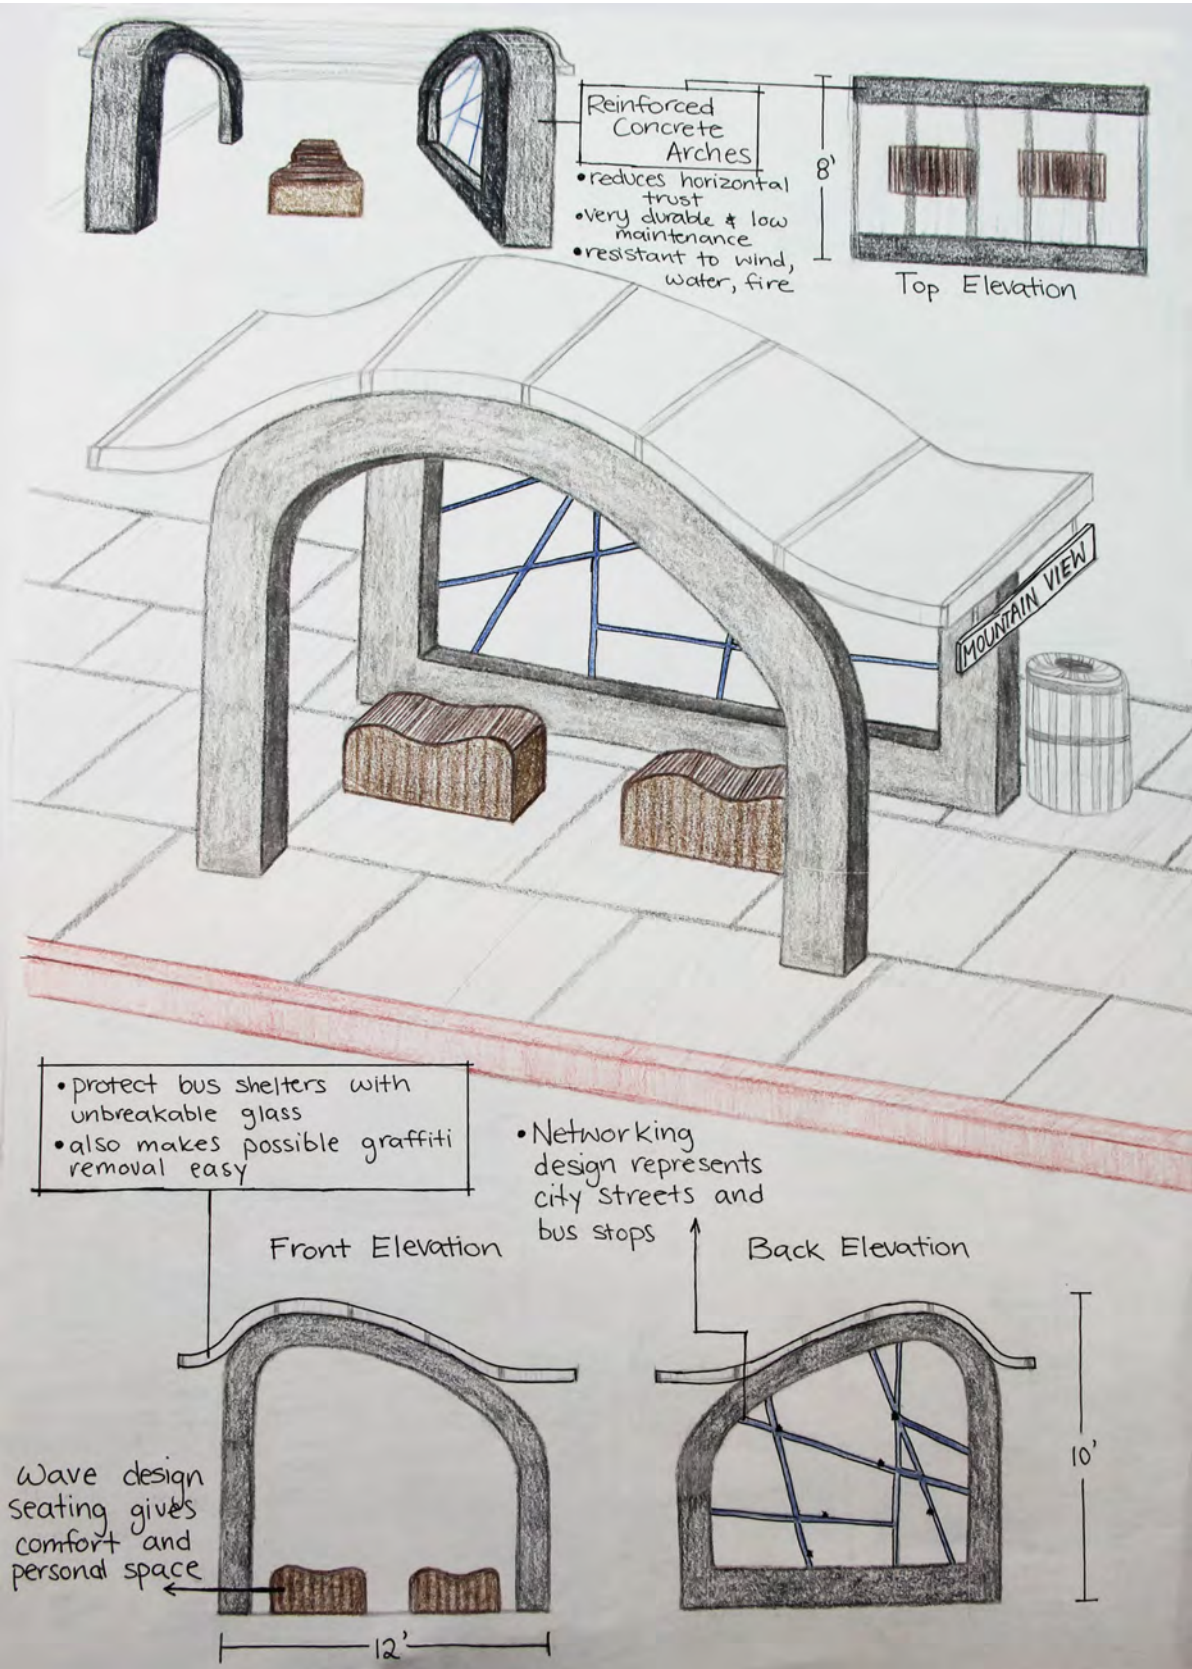 Reinforced
Concrete
Arches
• reduces horizontal
trust
• very durable & low
maintenance
• resistant to wind,
water, fire
8'
Top Elevation
MOUNTAIN VIEW
• protect bus shelters with
unbreakable glass
• also makes possible graffiti
removal easy
• Networking
design represents
city streets and
bus stops
Front Elevation
Back Elevation
10'
Wave design
seating gives
comfort and
personal space
12'